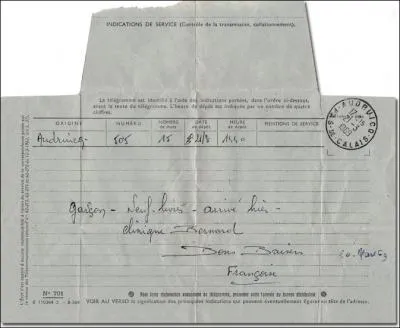 INDICATIONS DE SERVICE (Contrôle de la transmission, collationnement).
Le télégramme est identifié à l'aide des indications portées, dans l'ordre ci-dessous,
avant le texte du télégramme. L'heure de dépôt est indiquée par un nombre de quatre
chiffres.
ORIGINE NUMÉRO NOMBRE de mots DATE de dépôt HEURE de dépôt MENTIONS DE SERVICE
Audruicq 505 15 1440
AUDRUICQ
PAS-DE-CALAIS
Garçon - Neuf livres - arrivé hier -
clinique Bernard
Bons Baisers
Françoise
N° 701
Pour toute réclamation concernant ce télégramme, présenter cette formule au bureau distributeur
VOIR AU VERSO la signification des principales indications pouvant éventuellement figurer en tête de l'adresse.